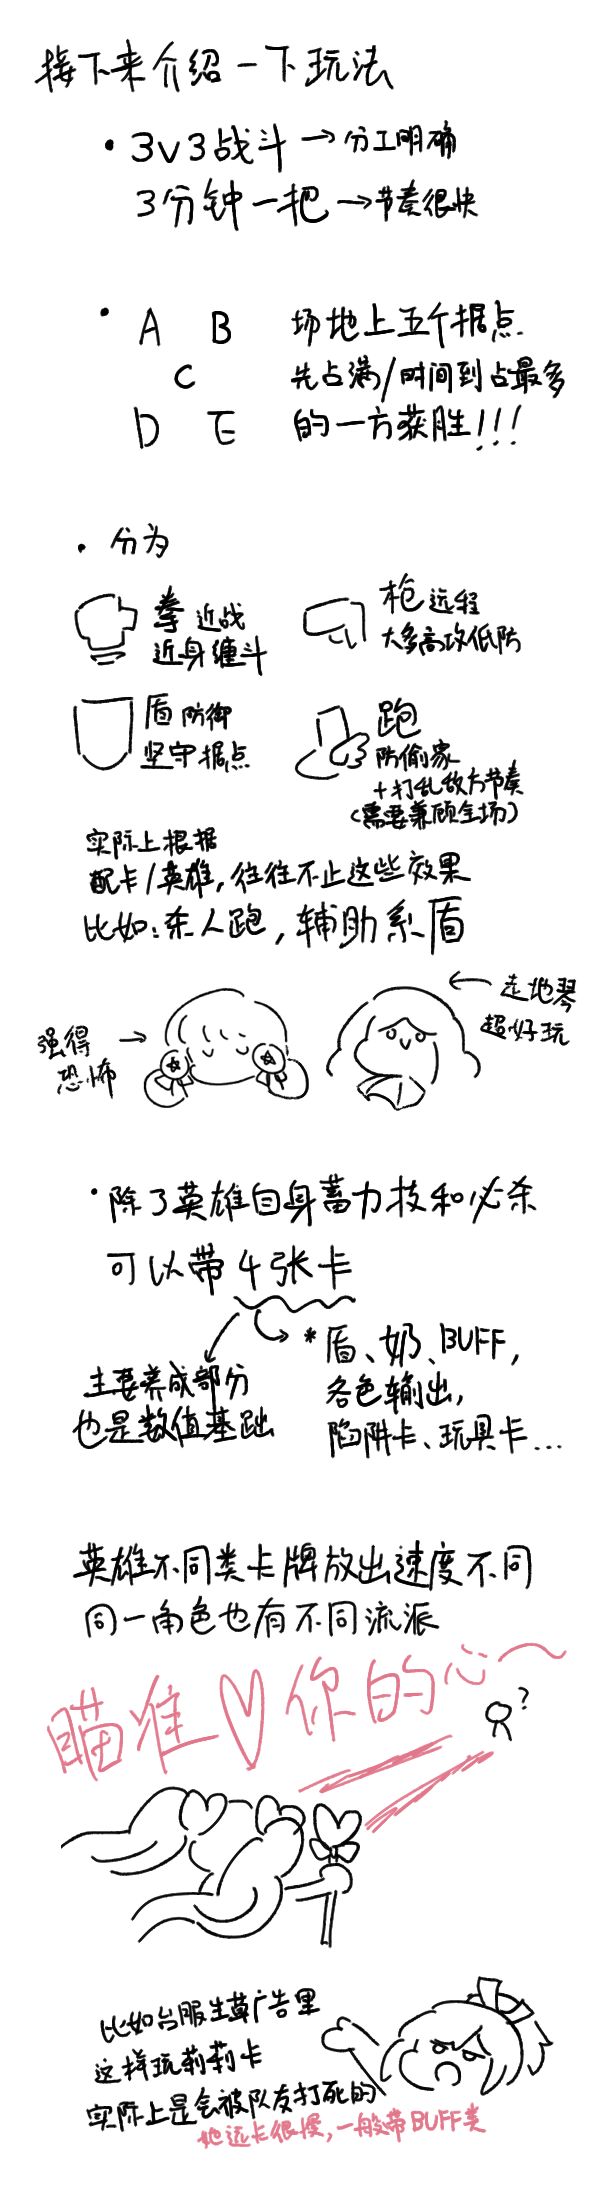 接下来介绍一下玩法
·3v3战斗→分工明确
3分钟一把→节奏很快
· A B
C
D E
场地上五个据点
先占满/时间到占最多
的一方获胜!!!
· 分为
拳 近战
近身缠斗
枪 远程
大多高攻低防
盾 防御
坚守据点
跑
防偷家
+打乱敌方节奏
(需要兼顾全场)
实际上根据
配卡/英雄,往往不止这些效果
比如:杀人跑,辅助系盾
强得→
恐怖
←走地琴
超好玩
·除了英雄自身蓄力技和必杀
可以带4张卡
主要养成部分
也是数值基础
*盾、奶、BUFF,
各色输出,
陷阱卡、玩具卡...
英雄不同类卡牌放出速度不同
同一角色也有不同流派
瞄准♡你的心~
?
比如台服生草广告里
这样玩莉莉卡
实际上是会被队友打死的
她远卡很慢,一般带BUFF类